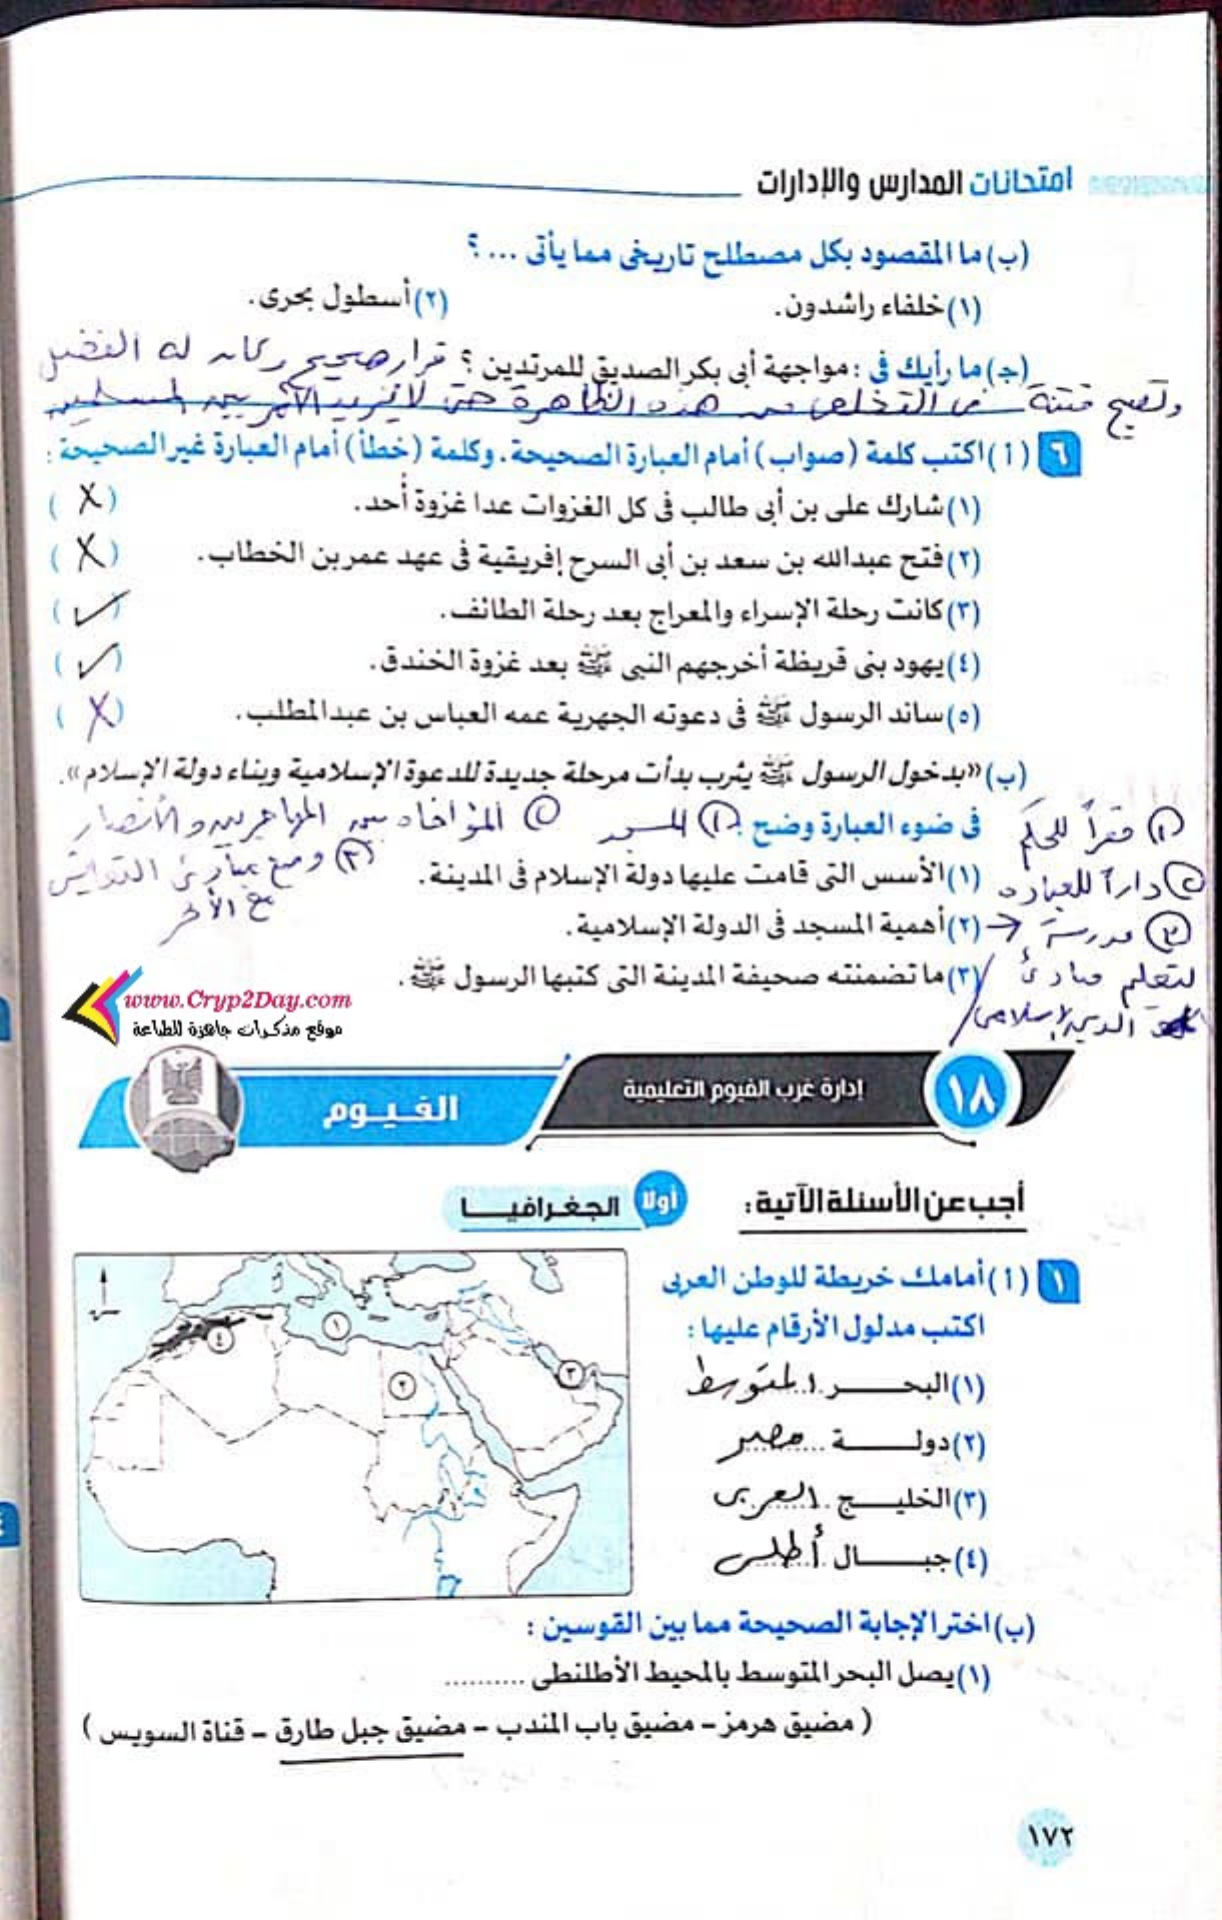 امتحانات المدارس والإدارات
(ب) ما المقصود بكل مصطلح تاريخى مما يأتى ... ؟
(١) خلفاء راشدون. (٢) أسطول بحرى.
(ج) ما رأيك فى : مواجهة أبى بكر الصديق للمرتدين ؟ قرار صحيح وكان له الفضل
فى التخلص من هذه الظاهرة حتى لا يزيد الأمر بين المسلمين وتصبح فتنة
٦ (أ) اكتب كلمة (صواب) أمام العبارة الصحيحة. وكلمة (خطأ) أمام العبارة غير الصحيحة :
(١) شارك على بن أبى طالب فى كل الغزوات عدا غزوة أُحد. (X)
(٢) فتح عبدالله بن سعد بن أبى السرح إفريقية فى عهد عمر بن الخطاب. (X)
(٣) كانت رحلة الإسراء والمعراج بعد رحلة الطائف. (✓)
(٤) يهود بنى قريظة أخرجهم النبى ﷺ بعد غزوة الخندق. (✓)
(٥) ساند الرسول ﷺ فى دعوته الجهرية عمه العباس بن عبدالمطلب. (X)
(ب) «بدخول الرسول ﷺ يثرب بدأت مرحلة جديدة للدعوة الإسلامية وبناء دولة الإسلام».
فى ضوء العبارة وضح : ① المسجد ② المؤاخاه بين المهاجرين والأنصار
③ وضع مبادئ التعايش
مع الآخر
(١) الأسس التى قامت عليها دولة الإسلام فى المدينة.
(٢) أهمية المسجد فى الدولة الإسلامية.
① مقراً للحكم
② داراً للعباده
③ مدرسة
لتعلم مبادئ
الدين الإسلامى
(٣) ما تضمنته صحيفة المدينة التى كتبها الرسول ﷺ.
www.Cryp2Day.com
موقع مذكرات جاهزة للطباعة
١٨ إدارة غرب الفيوم التعليمية الفيوم
أجب عن الأسئلة الآتية :
أولًا الجغرافيا
١ (أ) أمامك خريطة للوطن العربى
اكتب مدلول الأرقام عليها :
(١) البحر المتوسط
(٢) دولة مصر
(٣) الخليج العربى
(٤) جبال أطلس
١
٢
٣
٤
(ب) اختر الإجابة الصحيحة مما بين القوسين :
(١) يصل البحر المتوسط بالمحيط الأطلنطى ..........
( مضيق هرمز – مضيق باب المندب – مضيق جبل طارق – قناة السويس )
١٧٢